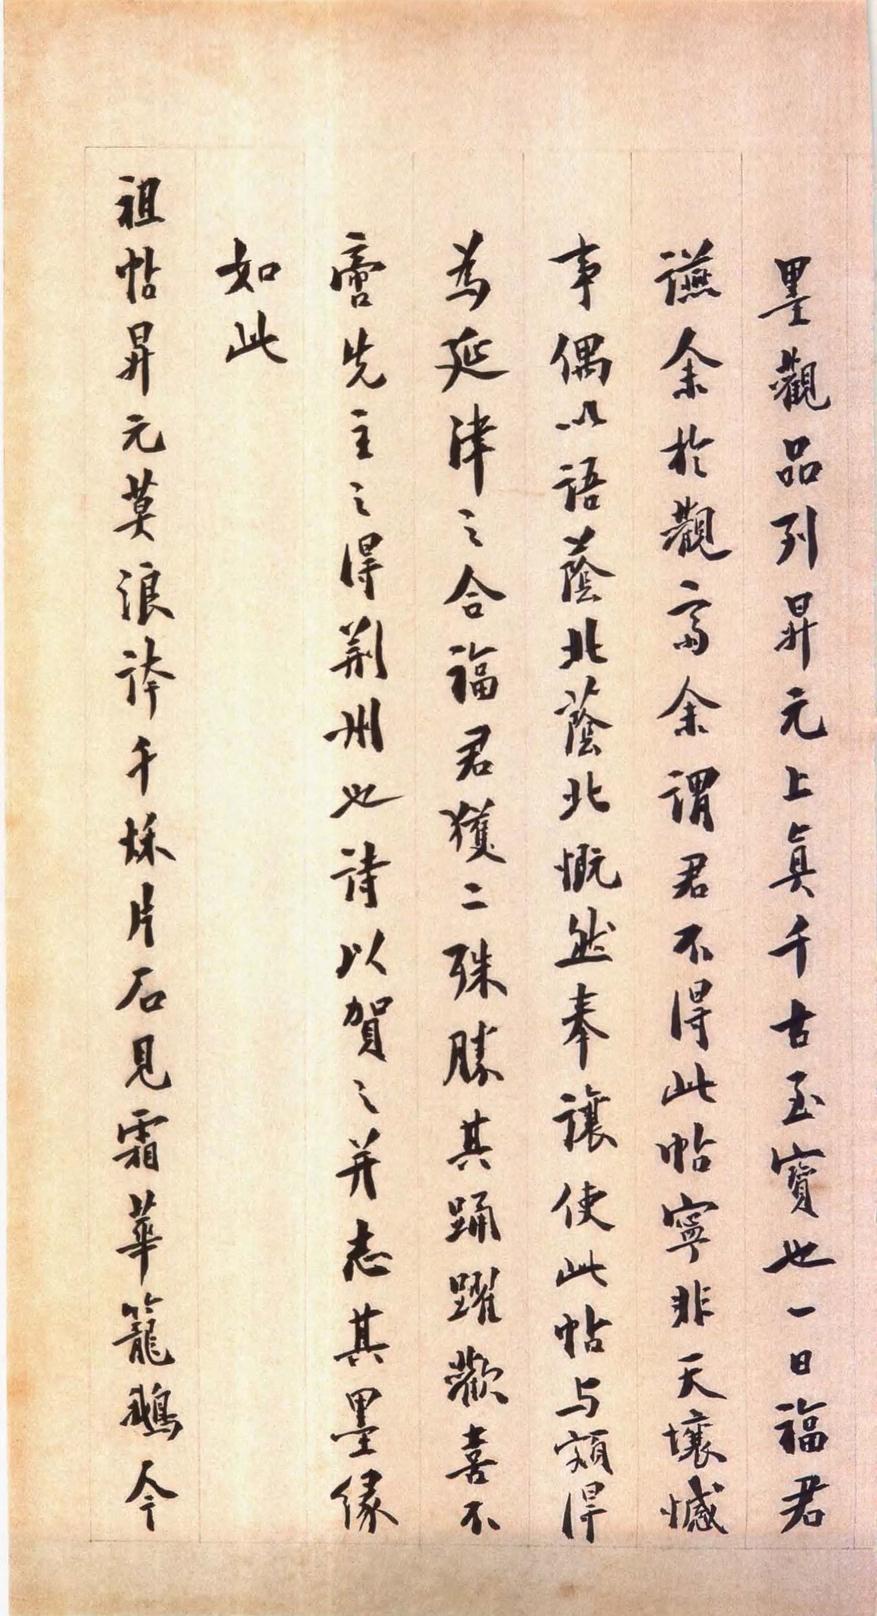 墨觀品列昇元上真千古至寶也一日福君
讌余於觀齋余謂君不得此帖寧非天壤憾
事偶以語蔭北蔭北慨然奉讓使此帖与潁淂
為延津之合福君獲二殊勝其踊躍歡喜不
啻先主之得荆州也詩以賀之并志其墨緣
如此
祖帖昇元莫浪誇千秌片石見霜華籠鵝今